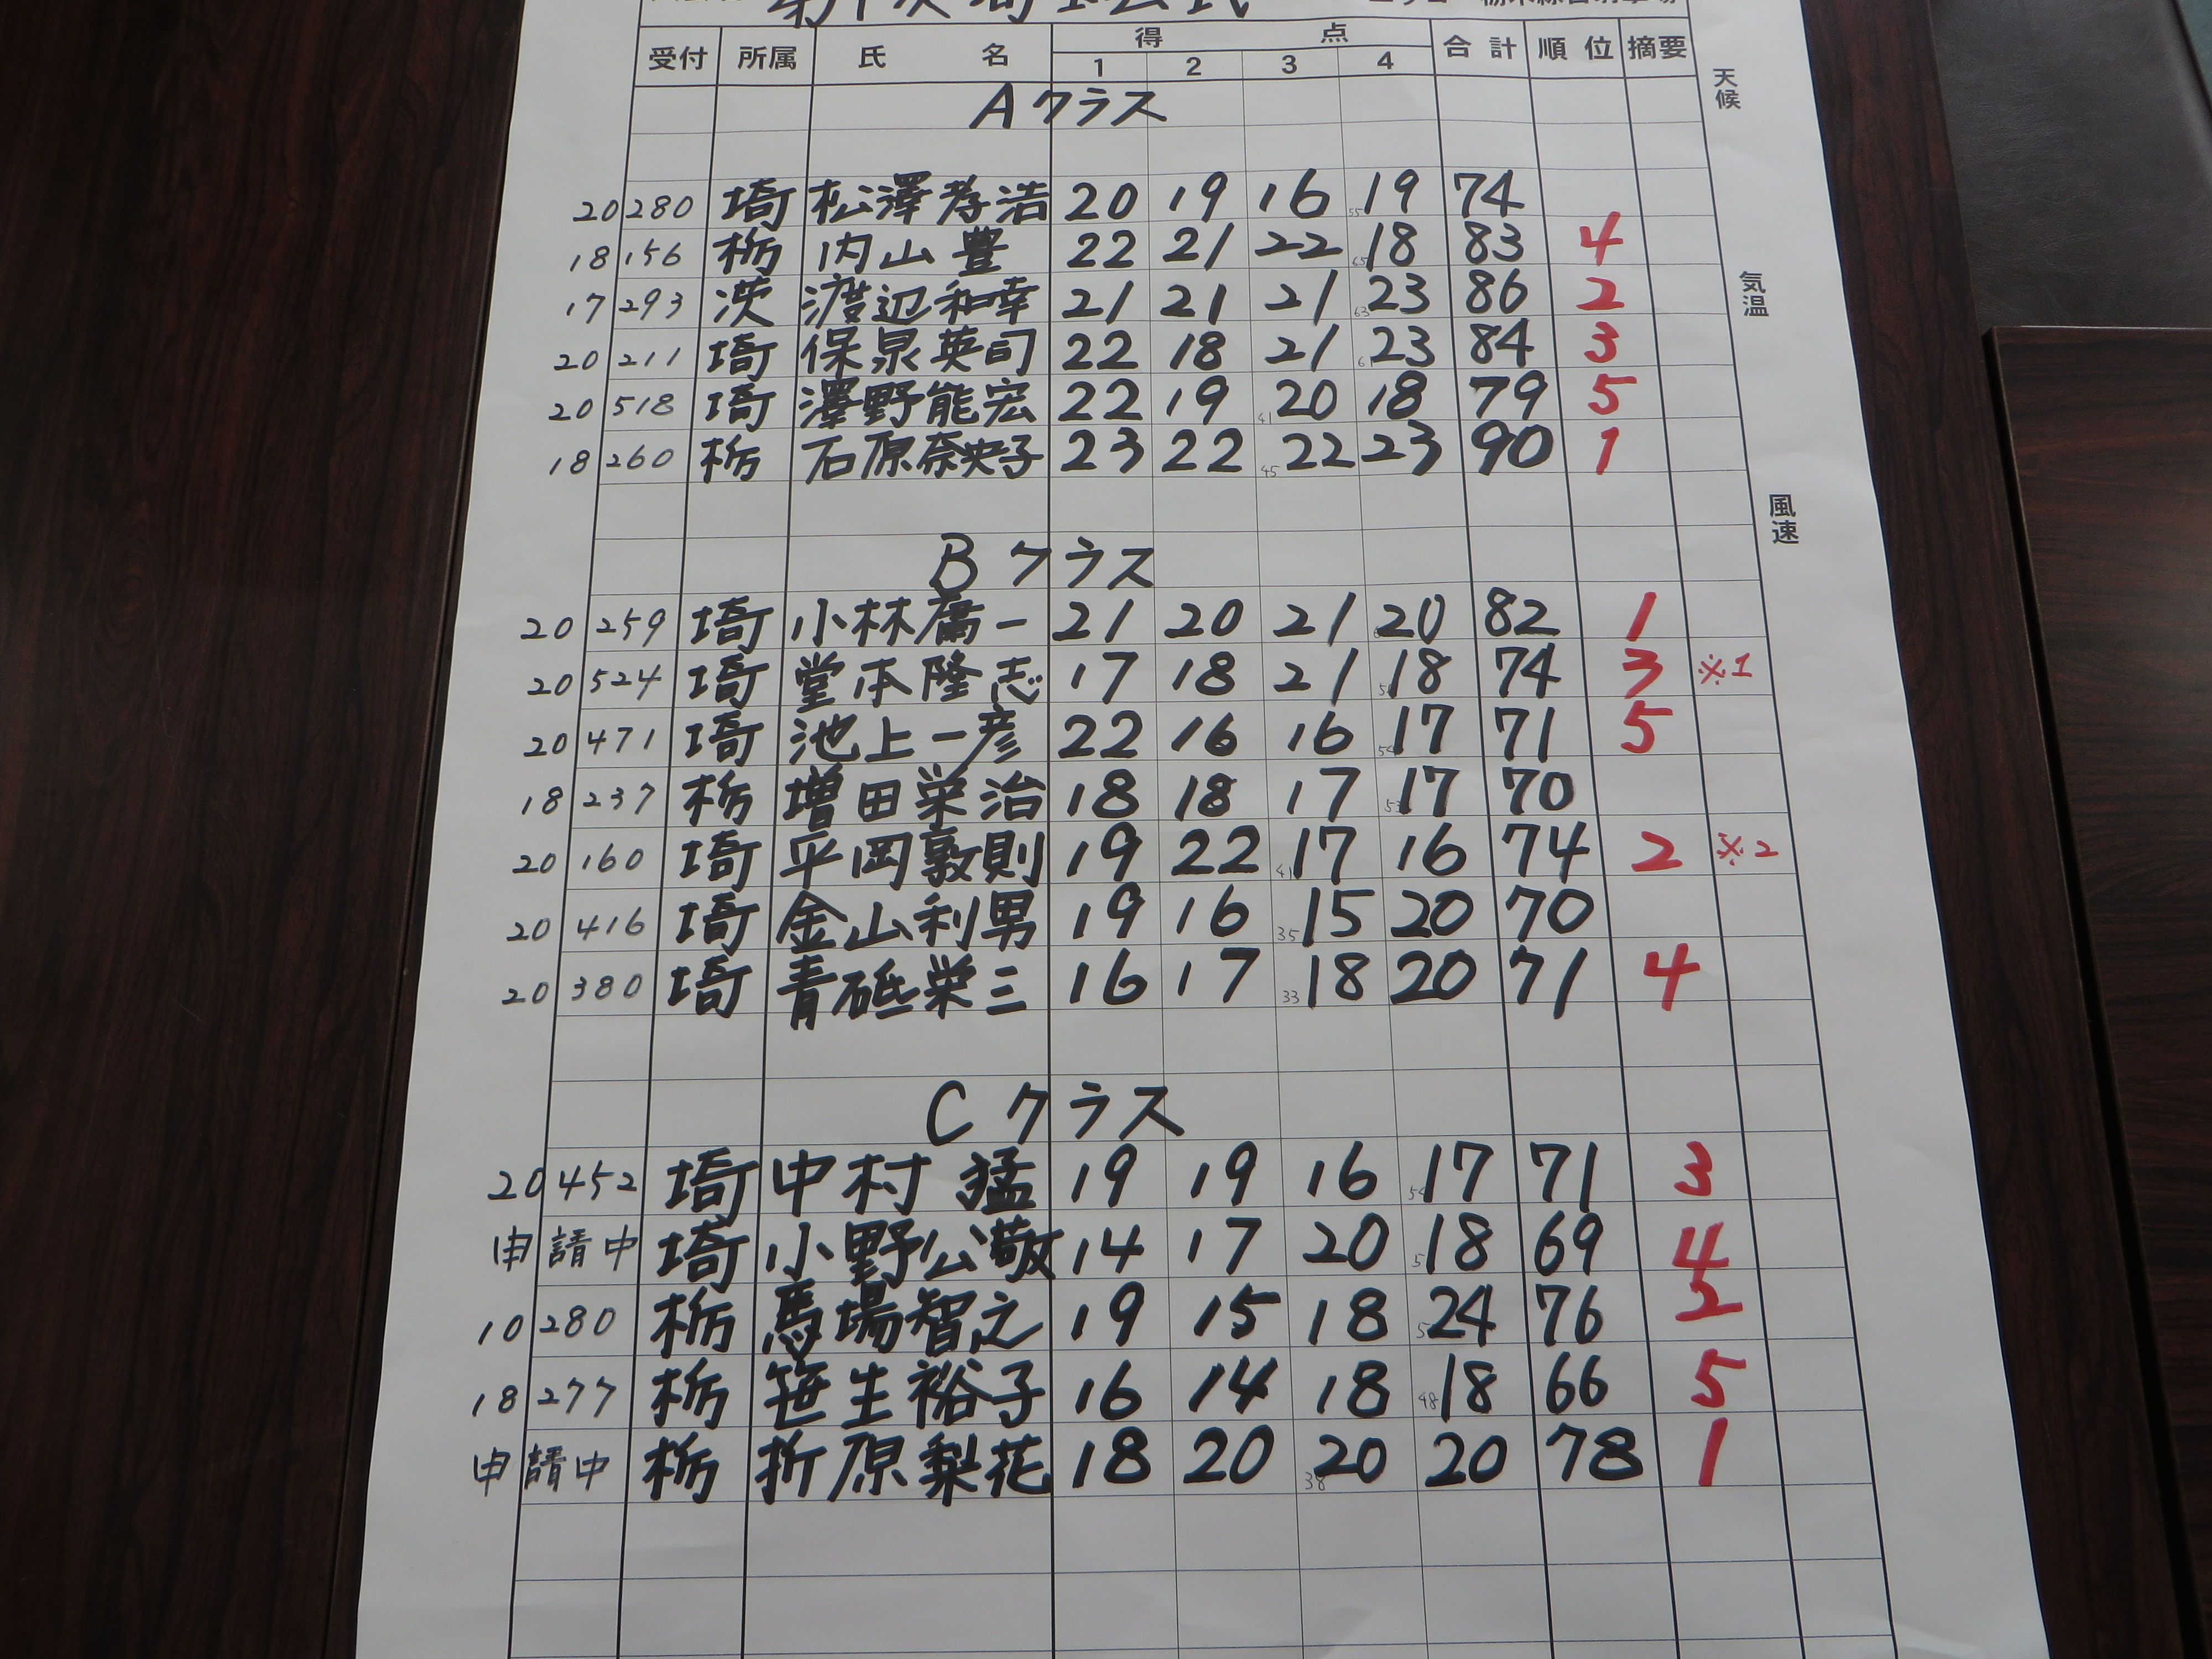 受付 所属 氏 名 得 点 合計 順位 摘要
1 2 3 4
天候
Aクラス
20 280 埼 松澤孝浩 20 19 16 55 19 74
18 156 栃 内山 豊 22 21 22 65 18 83 4
気温
17 293 茨 渡辺和幸 21 21 21 63 23 86 2
20 211 埼 保泉英司 22 18 21 61 23 84 3
20 518 埼 澤野能宏 22 19 41 20 18 79 5
18 260 栃 石原奈央子 23 22 45 22 23 90 1
風速
Bクラス
20 259 埼 小林庸一 21 20 21 20 82 1
20 524 埼 堂本隆志 17 18 21 18 74 3 ※1
20 471 埼 池上一彦 22 16 16 54 17 71 5
18 237 栃 増田栄治 18 18 17 53 17 70
20 160 埼 平岡敦則 19 22 41 17 16 74 2 ※2
20 416 埼 金山利男 19 16 35 15 20 70
20 380 埼 青砥栄三 16 17 33 18 20 71 4
Cクラス
20 452 埼 中村 猛 19 19 16 54 17 71 3
申請中 埼 小野公敬 14 17 20 18 69 4
10 280 栃 馬場智之 19 15 18 24 76 2
18 277 栃 笹生裕子 16 14 18 48 18 66 5
申請中 栃 折原梨花 18 20 38 20 20 78 1